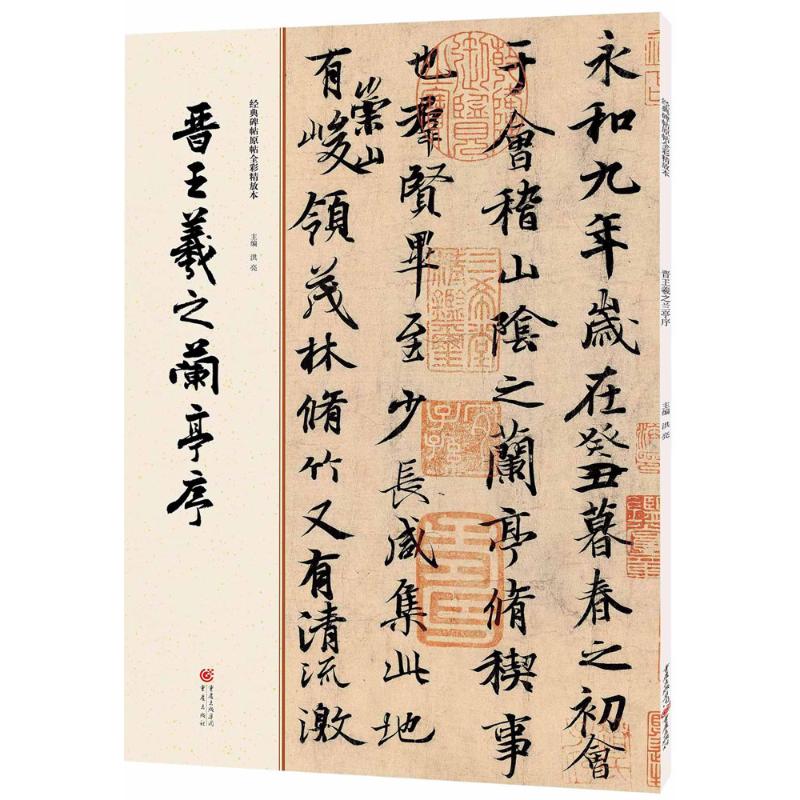 永和九年歲在癸丑暮春之初會
于會稽山陰之蘭亭脩稧事
也羣賢畢至少長咸集此地
有崇山峻領茂林脩竹又有清流激
经典碑帖原帖全彩精放本
主编 洪亮
晋王羲之蘭亭序
重庆出版集团
重庆出版社
经典碑帖原帖全彩精放本
晋王羲之兰亭序
主编 洪亮